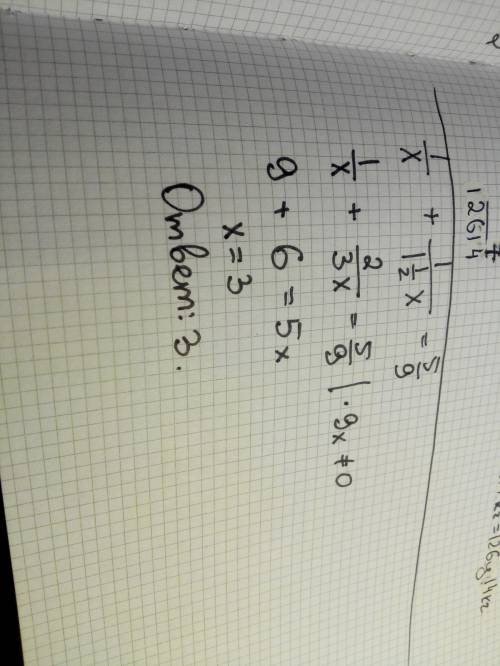 1/x + 1/(1 1/2 x) = 5/9
1/x + 2/3x = 5/9 | · 9x ≠ 0
9 + 6 = 5x
x = 3
Ответ: 3.